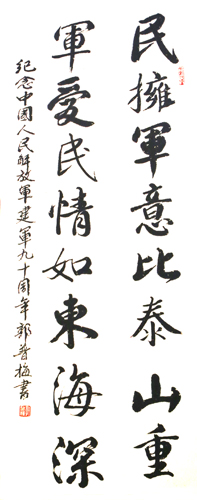 民擁軍意比泰山重
軍愛民情如東海深
纪念中國人民解放軍建軍九十周年郭普梅書